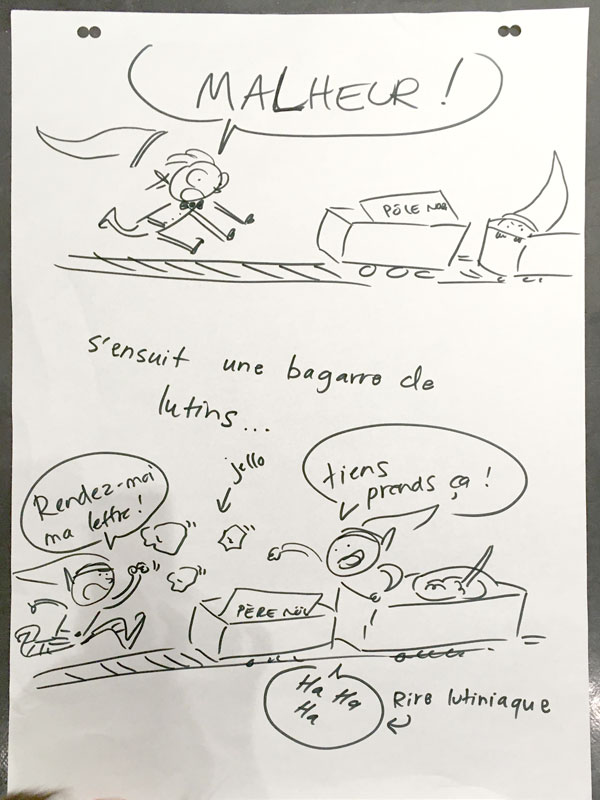 MALHEUR !
PÔLE NOR
s'ensuit une bagarre de
lutins...
jello
Rendez-moi
ma lettre !
tiens
prends ça !
PÈRE NOË
Ha Ha
Ha
Rire lutiniaque